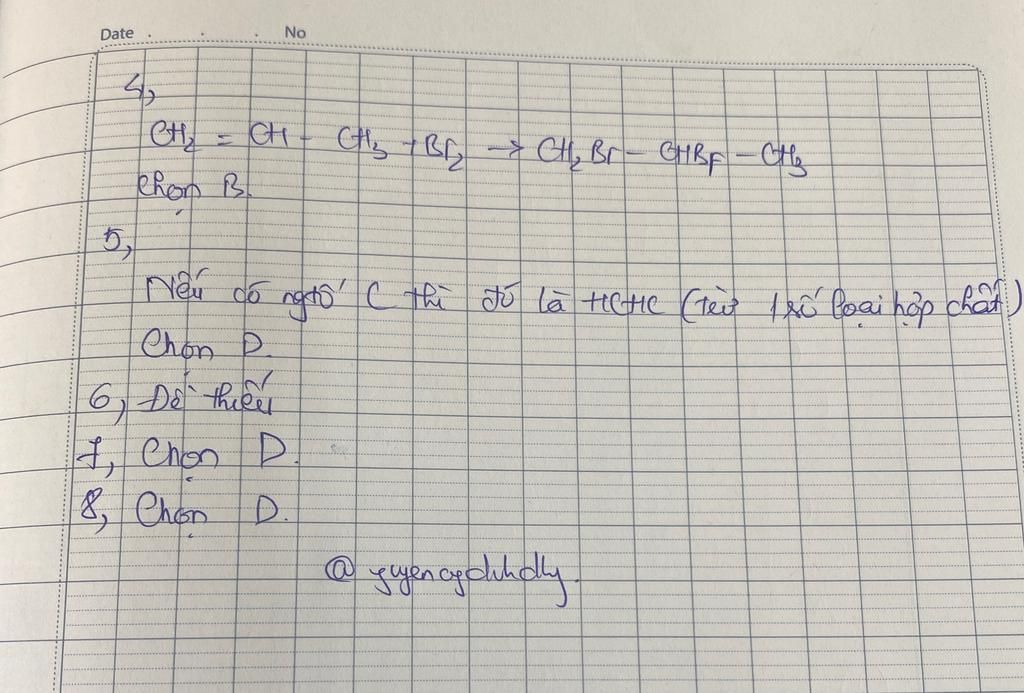 Date . . . No
4,
CH₂ = CH - CH₃ + Br₂ → CH₂Br - CHBr - CH₃
Chọn B.
5,
Nếu có ngtố C thì đó là HCHC (trừ 1 số loại hợp chất)
Chọn D.
6, Đề thiếu
7, Chọn D.
8, Chọn D.